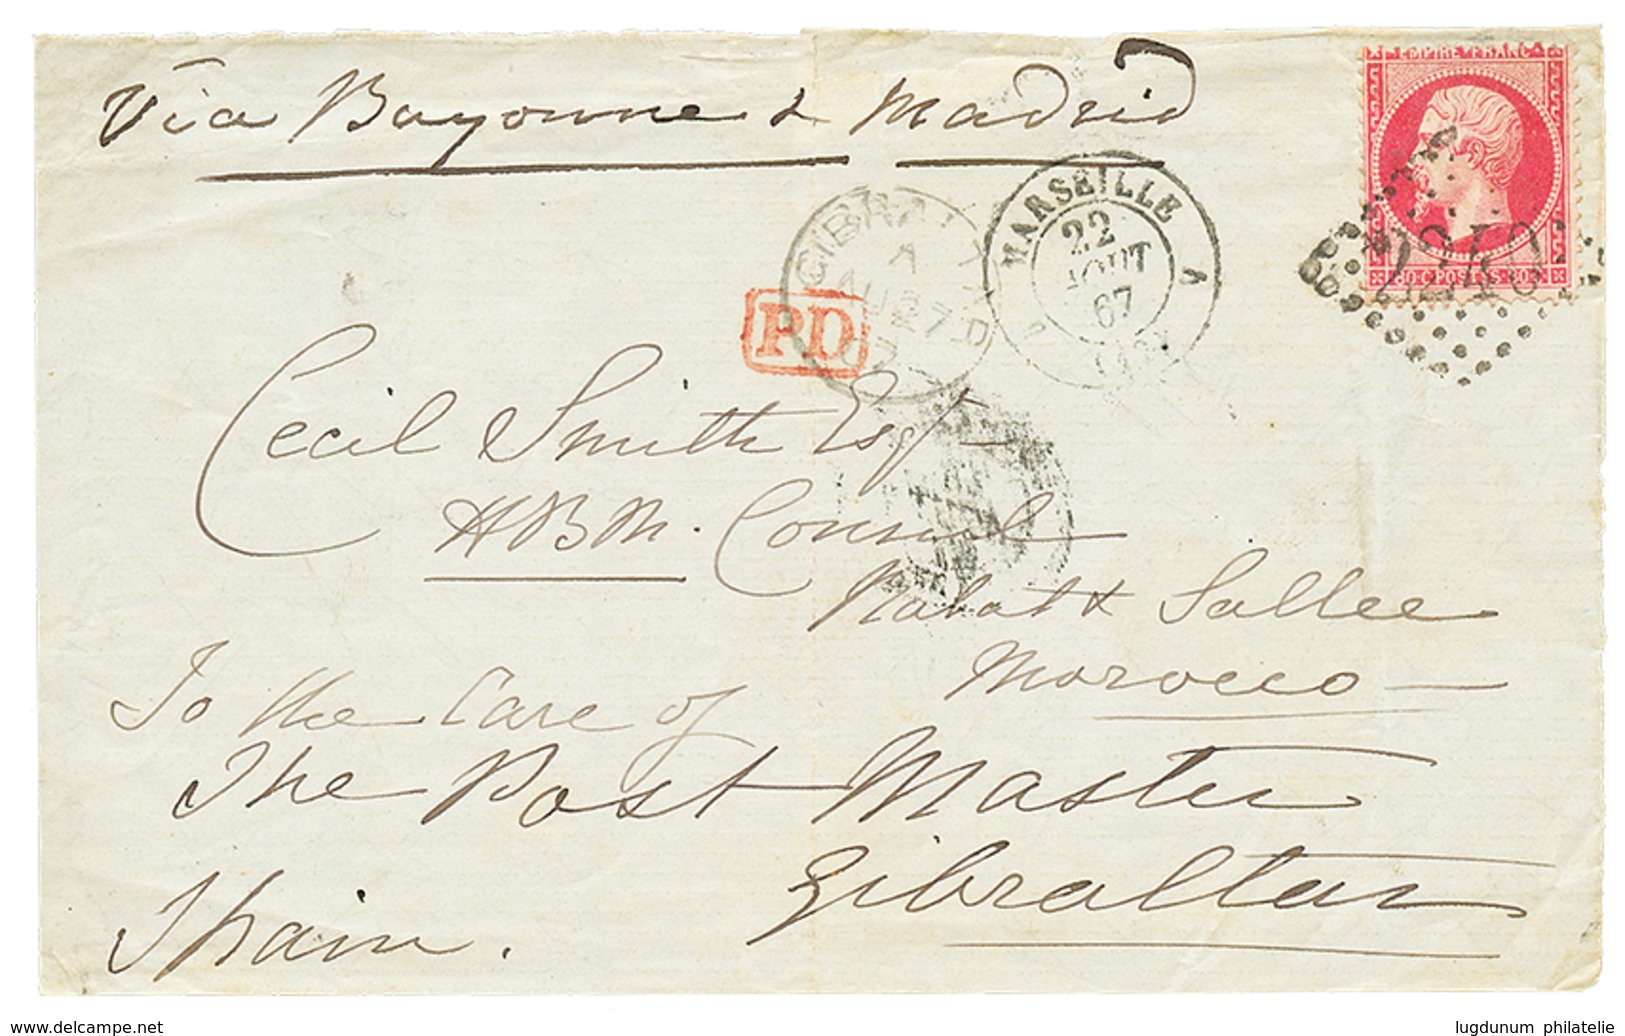 Via Bayonne & Madrid
EMPIRE FRANC
80 C POSTES 80
2240
MARSEILLE
22
AOUT
67
GIBRAL
A
AU 27
67
PD
Cecil Smith Esq
H B M. Consul
Rabat & Sallee
Morocco
To the Care of
The Post Master
Gibraltar
Spain.
www.delcampe.net
lugdunum philatelie